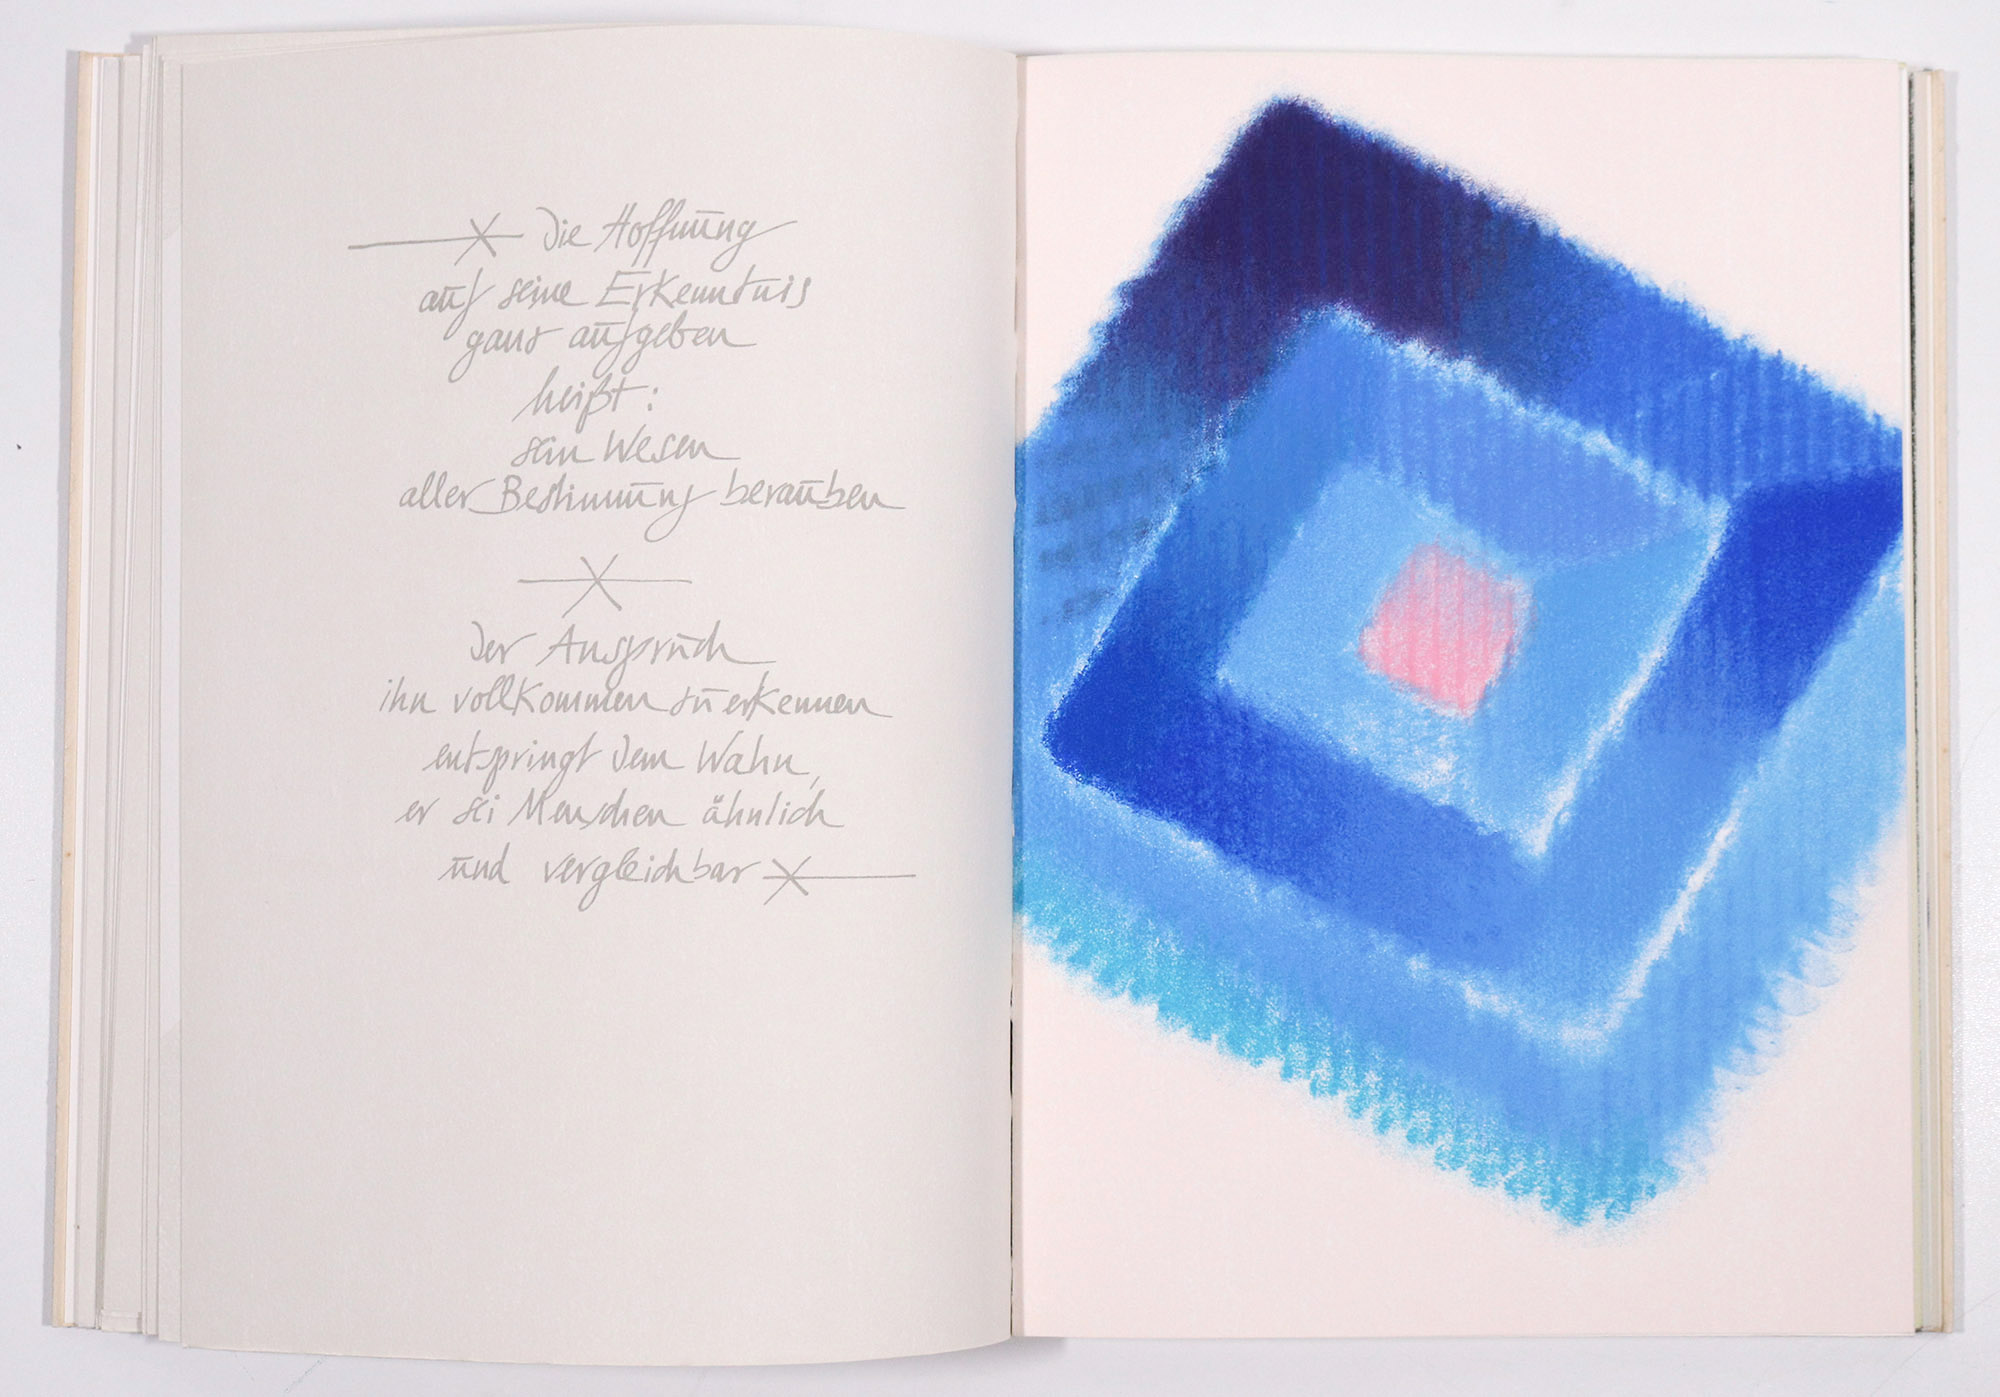 Die Hoffnung
auf seine Erkenntnis
ganz aufgeben
heißt:
sein Wesen
aller Bestimmung berauben
Der Anspruch
ihn vollkommen zu erkennen
entspringt dem Wahn,
er sei Menschen ähnlich
und vergleichbar